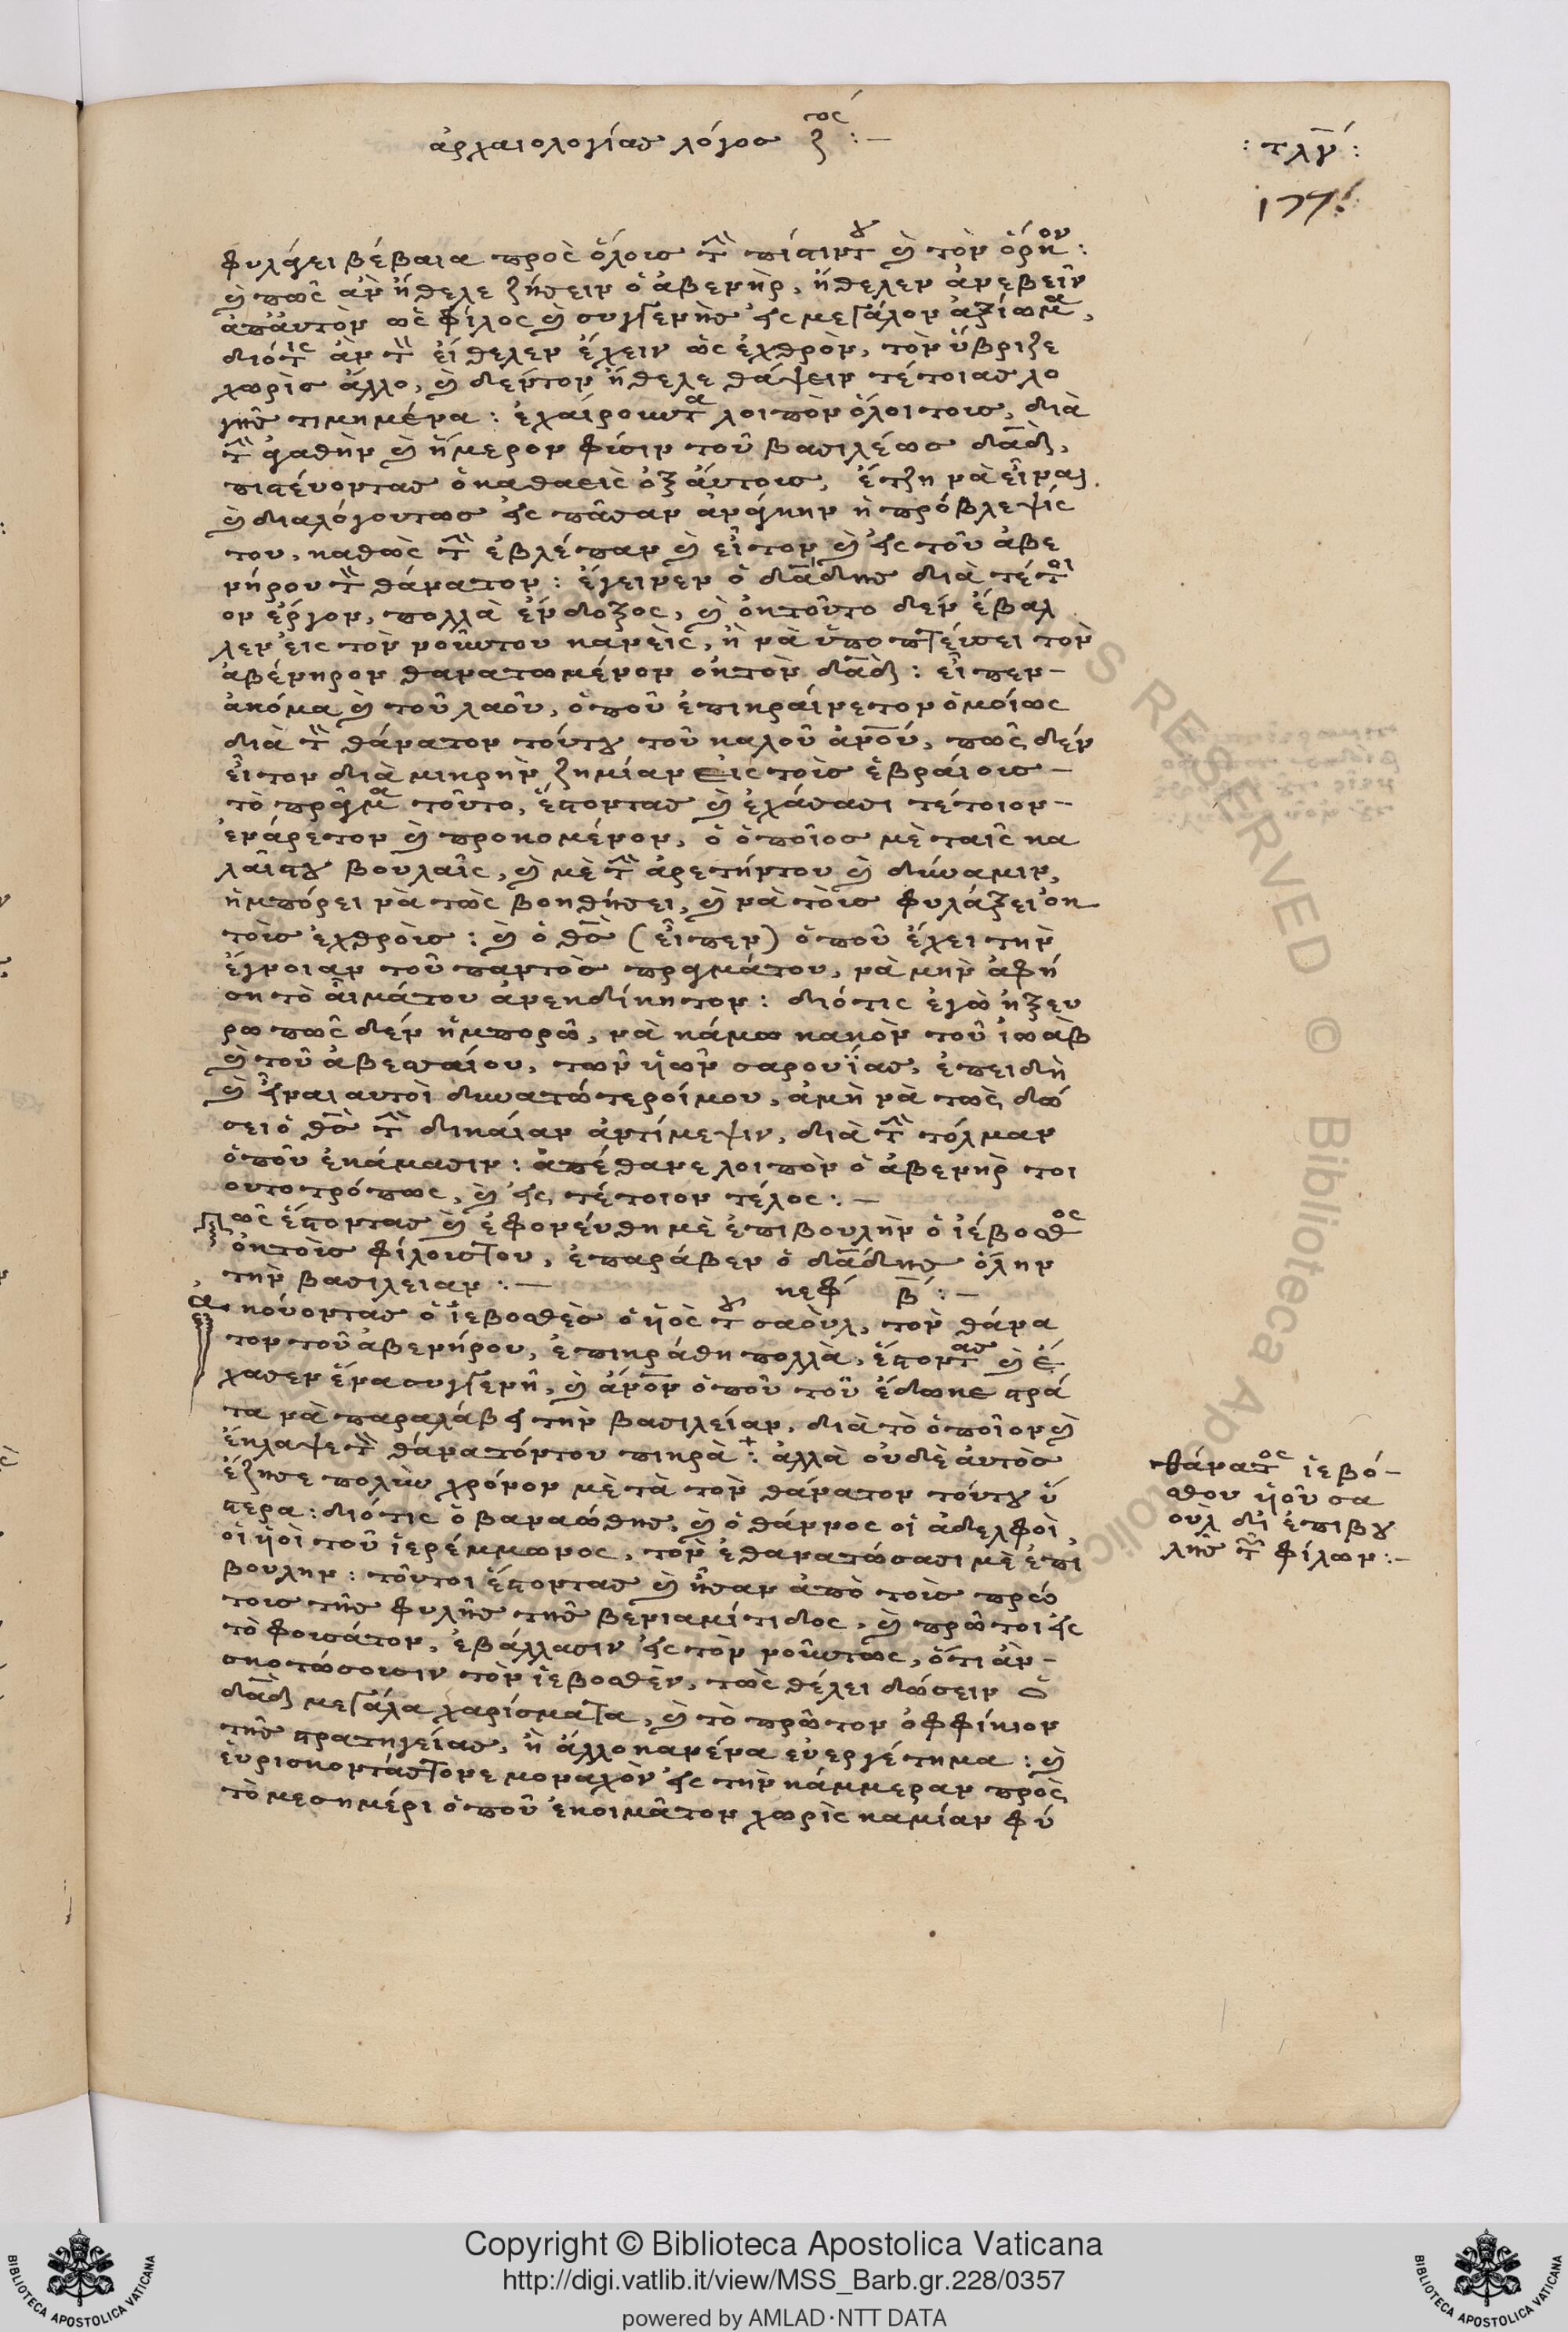 ἀρχαιολογίας λόγος ζ^ος :—
: τλγ :
177.
φυλάγει βέβαια πρὸς ὅλους τὴ πίστιντου καὶ τὸν ὅρκον:
καὶ πῶς ἂν ἤθελε ζήσειν ὁ ἀβενήρ, ἤθελεν ἀνεβεῖν
ἀπ' αὐτὸν ὡς φίλος καὶ συγγενὴς εἰς μεγάλον ἀξίωμα,
διότις ἂν τὸν εἴθελεν ἔχειν ὡς ἐχθρὸν, τὸν ὕβριζε
χωρὶς ἄλλο, καὶ δέντον ἤθελε θάψειν τέτοιας λο
γῆς τιμημένα: ἐχαίρουντα λοιπὸν ὅλοι τους, διὰ
τὴν ἀγαθὴν καὶ ἥμερον φύσιν τοῦ βασιλέως δᾱδ,
πιστεύοντας ὁ καθαεὶς ὀξ αὐτους, ἔτζη νὰ εἶναι
καὶ διαλόγουτως εἰς πᾶσαν ἀνάγκην ἡ πρόβλεψίς
του, καθὼς τὴν ἐβλέπαν καὶ εἶτον καὶ εἰς τοῦ ἀβε
νήρου τὸν θάνατον: ἔγεινεν ὁ δᾱδης διὰ τέτοι
ον ἔργον, πολλὰ ἔνδοξος, καὶ ὀκτοῦτο δὲν ἔβαλ
λεν εἰς τὸν νοῦντου κανεὶς, ἢ νὰ ὑποπτεύσει τὸν
ἀβένηρον θανατωμένον ὀκτὸν δᾱδ: εἶπεν—
ἀκόμα καὶ τοῦ λαοῦ, ὁποῦ ἐπικραίνετον ὁμοίως
διὰ τὸν θάνατον τούτου τοῦ καλοῦ ἀνο̄ύ, πῶς δὲν
εἶτον διὰ μικρὴν ζημίαν εἰς τοὺς ἑβραίους—
τὸ πρᾶγμα τοῦτο, ἔστοντας καὶ ἐχάσασι τέτοιον—
ἐνάρετον καὶ προκομένον, ὁ ὁποῖος μὲ ταῖς κα
λαίςτου βουλαῖς, καὶ μὲ τὴν ἀρετήντου καὶ δύναμιν,
ἠμπόρει νὰ τοὺς βοηθήσει, καὶ νὰ τοὺς φυλάξει ὀκ
τοὺς ἐχθρούς: καὶ ὁ θς̄ (εἶπεν) ὁποῦ ἔχει τὴν
ἔγνοιαν τοῦ παντὸς πραγμάτου, νὰ μὴν ἀφή
ση τὸ αἷμάτου ἀνεκδίκητον: διότις ἐγὼ ἠξεύ
ρω πῶς δὲν ἠμπορῶ, νὰ κάμω κακὸν τοῦ ἰωὰβ
καὶ τοῦ ἀβεσαίου, τῶν ὑιῶν σαρουΐας, ἐπειδὴ
καὶ εἶναι αὐτοὶ δυνατώτεροίμου, ἀμὴ νὰ τοὺς δώ
σει ὁ θς̄ τὴν δικαίαν ἀντίμεψιν, διὰ τὴν τόλμαν
ὁποῦ ἐκάμασιν: ἀπέθανε λοιπὸν ὁ ἀβενὴρ τοι
ουτοτρόπως, καὶ εἰς τέτοιον τέλος:—
Πῶς ἔστοντας καὶ ἐφονεύθη μὲ ἐπιβουλὴν ὁ ἰέβοσθος
ὀκτοὺς φίλουςτου, ἐπαράβεν ὁ δᾱδης ὅλην
τὴν βασιλείαν:—
κεφ β̄:—
Ἀκούοντας ὁ ἰεβοσθὲς ὁ ὑιὸς τοῦ σαοὺλ, τὸν θάνα
τον τοῦ ἀβενήρου, ἐπικράθη πολλὰ, ἔστοντας καὶ ἔ
χασεν ἕνα συγγενῆ, καὶ ἄνο̄ν ὁποῦ τοῦ ἔδωκε στρά
τα νὰ παραλάβει τὴν βασιλείαν, διὰ τὸ ὁποῖον καὶ
ἔκλαψε τὸν θάνατόντου πικρὰ+: ἀλλὰ οὐδὲ αὐτὸς
ἔζησε πολὺν χρόνον μὲ τὰ τὸν θάνατον τούτου ὕ
στερα: διότις ὁ βαναώθης, καὶ ὁ θάννος οἱ ἀδελφοὶ,
οἱ ὑιοὶ τοῦ ἱερέμμωνος, τὸν ἐθανατώσασι μὲ ἐπι
βουλήν: τοῦτοι ἔστοντας καὶ ἦσαν ἀπὸ τοὺς πρώ
τους τῆς φυλῆς τῆς βενιαμίτιδος, καὶ πρῶτοι εἰς
τὸ φουσάτον, ἐβάλλασιν εἰς τὸν νοῦντως, ὅτι ἂν—
σκοτώσουσιν τὸν ἰεβοσθὲν, τοὺς θέλει δώσειν ὁ
δᾱδ μεγάλα χαρίσματα, καὶ τὸ πρῶτον ὀφφίκιον
τῆς στρατηγείας, ἢ ἄλλο κανένα εὐεργέτημα: καὶ
εὑρισκοντάςτονε μοναχὸν εἰς τὴν κάμμεραν πρὸς
τὸ μεσημέρι ὁποῦ ἐκοιμᾶτον χωρὶς καμίαν φύ
θάνατος ἰεβό—
σθου ὑιοῦ σα
οὺλ δι' ἐπιβου
λῆς τῶν φίλων:—
Copyright © Biblioteca Apostolica Vaticana
http://digi.vatlib.it/view/MSS_Barb.gr.228/0357
powered by AMLAD·NTT DATA
BIBLIOTECA APOSTOLICA VATICANA
BIBLIOTECA APOSTOLICA VATICANA